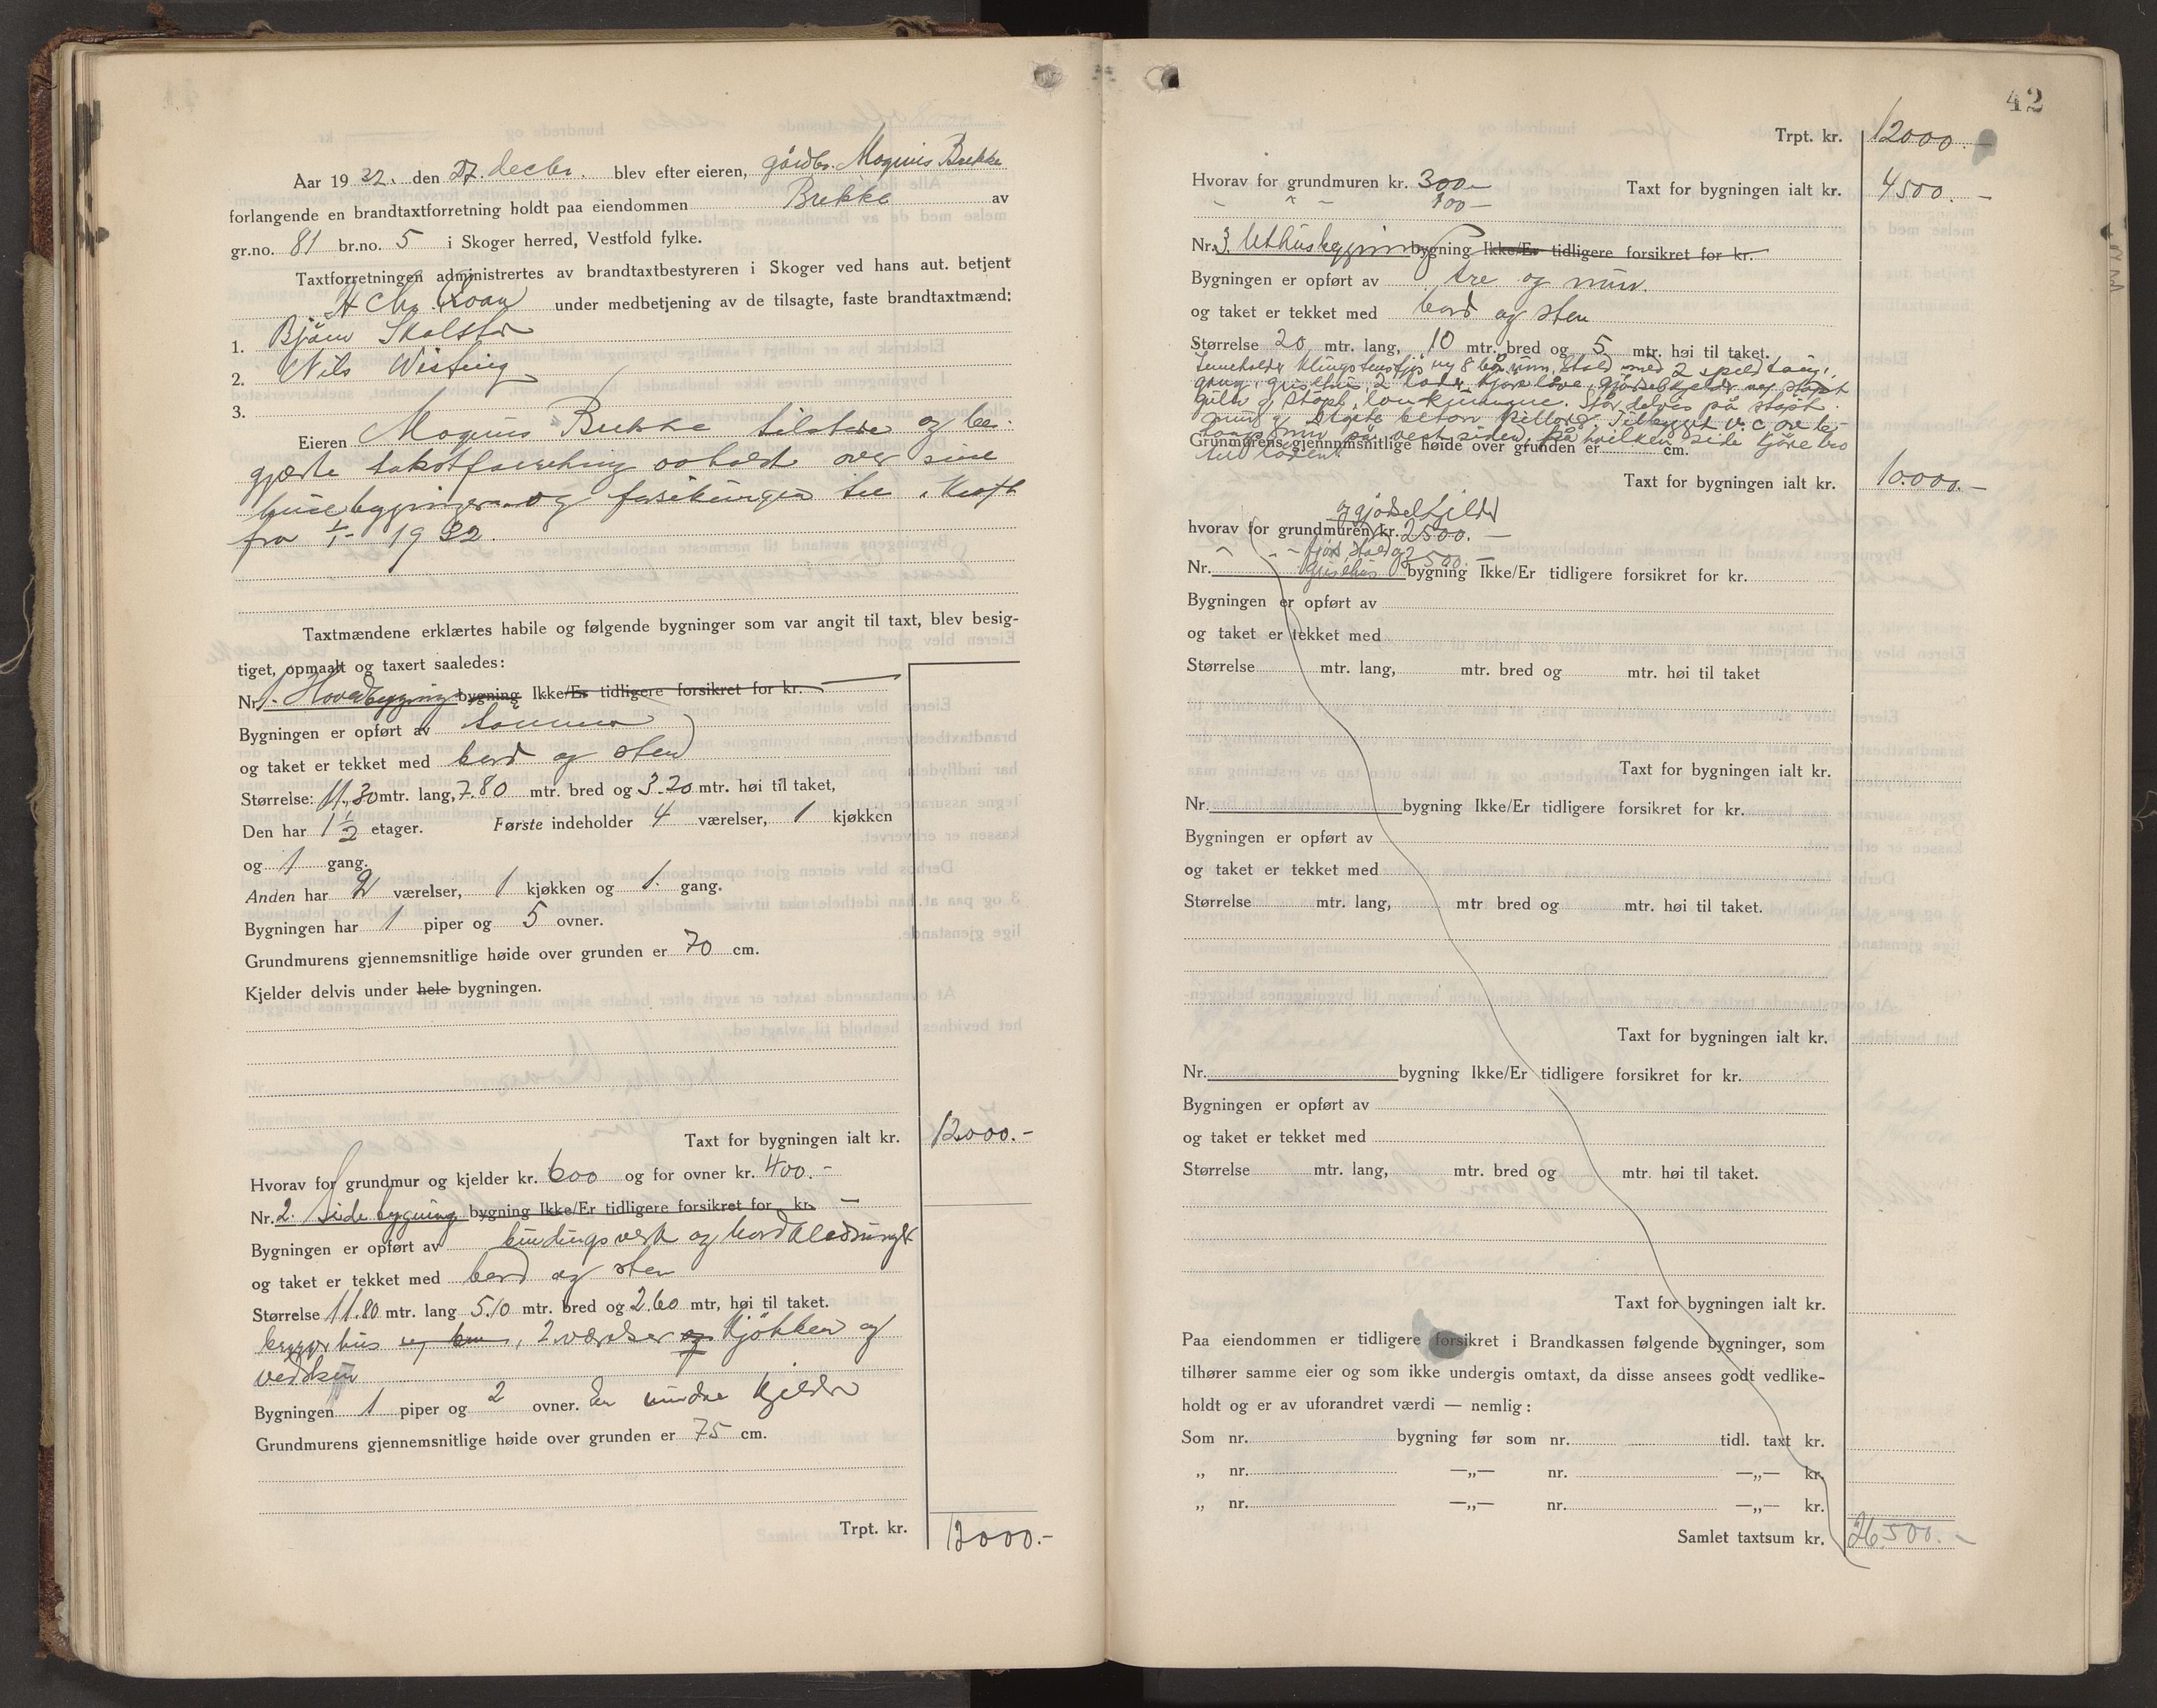 Aar 1932. den 27. decbr. blev efter eieren, gårdbr. Magnus Brekke
forlangende en brandtaxtforretning holdt paa eiendommen Brekke av
gr.no. 81 br.no. 5 i Skoger herred, Vestfold fylke.
Taxtforretningen administrertes av brandtaxtbestyreren i Skoger ved hans aut. betjent
H Chr. Roan under medbetjening av de tilsagte, faste brandtaxtmænd:
1. Bjarne Skalstad
2. Nils Wisting
3.
Eieren Magnus Brekke tilstede og be-
gjærte takstforretning avholdt over sine
husebygninger og forsikringen til i kraft
fra 1/1- 1932.
Taxtmændene erklærtes habile og følgende bygninger som var angit til taxt, blev besig-
tiget, opmaalt og taxert saaledes:
Nr. 1. Hovedbygning bygning Ikke/Er tidligere forsikret for kr. —
Bygningen er opført av tømmer
og taket er tekket med bord og sten
Størrelse: 11,30 mtr. lang, 7.80 mtr. bred og 3.20 mtr. høi til taket,
Den har 1 1/2 etager. Første indeholder 4 værelser, 1 kjøkken
og 1 gang.
Anden har 2 værelser, 1 kjøkken og 1. gang.
Bygningen har 1 piper og 5 ovner.
Grundmurens gjennemsnitlige høide over grunden er 70 cm.
Kjelder delvis under hele bygningen.
Taxt for bygningen ialt kr. 12000.-
Hvorav for grundmur og kjelder kr. 600 og for ovner kr. 400.-
Nr. 2. Sidebygning bygning Ikke/Er tidligere forsikret for kr. —
Bygningen er opført av bindingsverk og bordklædning
og taket er tekket med bord og sten
Størrelse 11.80 mtr. lang 5.10 mtr. bred og 2.60 mtr, høi til taket.
bryggerhus og , 2 værelser og kjøkken og
vedskur
Bygningen 1 piper og 2 ovner. En mindre kjelder
Grundmurens gjennemsnitlige høide over grunden er 75 cm.
Trpt. kr. 12000.-
42
Trpt. kr. 12000.-
Hvorav for grundmuren kr. 300.- Taxt for bygningen ialt kr. 4500.-
" " " 100 -
Nr. 3. Uthusbygning bygning Ikke/Er tidligere forsikret for kr.
Bygningen er opført av tre og mur.
og taket er tekket med bord og sten
Størrelse 20 mtr. lang, 10 mtr. bred og 5 mtr. høi til taket.
Inneholder klingstensfjøs, 8 båsrum, stald med 2 spiltaug,
gang, grishus, 2 lader, kjørelåve, gjødselkjeller støpt
gulv og støpt. Står delvis på støpt
mur og støpte betong Tilbygget v.c.
på vest siden, på hvilken side kjørebro
Grunmurens gjennmsnitlige høide over grunden er cm.
til låven.
Taxt for bygningen ialt kr. 10.000.-
og gjødselkjelder
hvorav for grundmuren kr. 2500.-
" " - fjøs, stald og
grishus 2500.-
Nr. bygning Ikke/Er tidligere forsikret for kr.
Bygningen er opført av
og taket er tekket med
Størrelse mtr. lang, mtr. bred og mtr. høi til taket
Taxt for bygningen ialt kr.
Nr. bygning Ikke/Er tidligere forsikret for kr.
Bygningen er opført av
og taket er tekket med
Størrelse mtr. lang, mtr bred og mtr. høi til taket.
Taxt for bygningen ialt kr.
Nr. bygning Ikke/Er tidligere forsikret for kr.
Bygningen er opført av
og taket er tekket med
Størrelse mtr. lang, mtr. bred og mtr. høi til taket.
Taxt for bygningen ialt kr.
Paa eiendommen er tidligere forsikret i Brandkassen følgende bygninger, som
tilhører samme eier og som ikke undergis omtaxt, da disse ansees godt vedlike-
holdt og er av uforandret værdi — nemlig:
Som nr. bygning før som nr. tidl. taxt kr.
„ nr. —„— nr. —„— kr.
„ nr. —„— nr. —„— kr.
Samlet taxtsum kr. 26.500.-